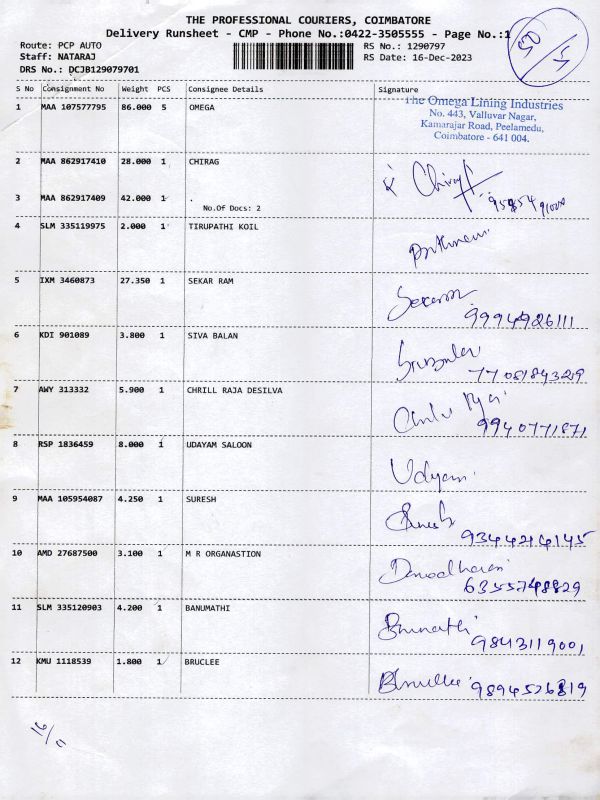 THE PROFESSIONAL COURIERS, COIMBATORE
Delivery Runsheet - CMP - Phone No.:0422-3505555 - Page No.:1
Route: PCP AUTO
RS No.: 1290797
Staff: NATARAJ
RS Date: 16-Dec-2023
DRS No.: DCJB129079701
S No Consignment No Weight PCS Consignee Details Signature
1 MAA 107577795 86.000 5 OMEGA
The Omega Lining Industries
No. 443, Valluvar Nagar,
Kamarajar Road, Peelamedu,
Coimbatore - 641 004.
2 MAA 862917410 28.000 1 CHIRAG
Chirag
3 MAA 862917409 42.000 1 .
No.Of Docs: 2
4 SLM 335119975 2.000 1 TIRUPATHI KOIL
5 IXM 3460873 27.350 1 SEKAR RAM
9994926111
6 KDI 901089 3.800 1 SIVA BALAN
7708184329
7 AWY 313332 5.900 1 CHRILL RAJA DESILVA
9940771871
8 RSP 1836459 8.000 1 UDAYAM SALOON
Udyam
9 MAA 105954087 4.250 1 SURESH
9344214145
10 AMD 27687500 3.100 1 M R ORGANASTION
Damodharan
6355748829
11 SLM 335120903 4.200 1 BANUMATHI
9843119001
12 KMU 1118539 1.800 1 BRUCLEE
9894526819